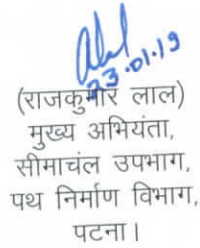 23.01.19
(राजकुमार लाल)
मुख्य अभियंता,
सीमाचंल उपभाग,
पथ निर्माण विभाग,
पटना।